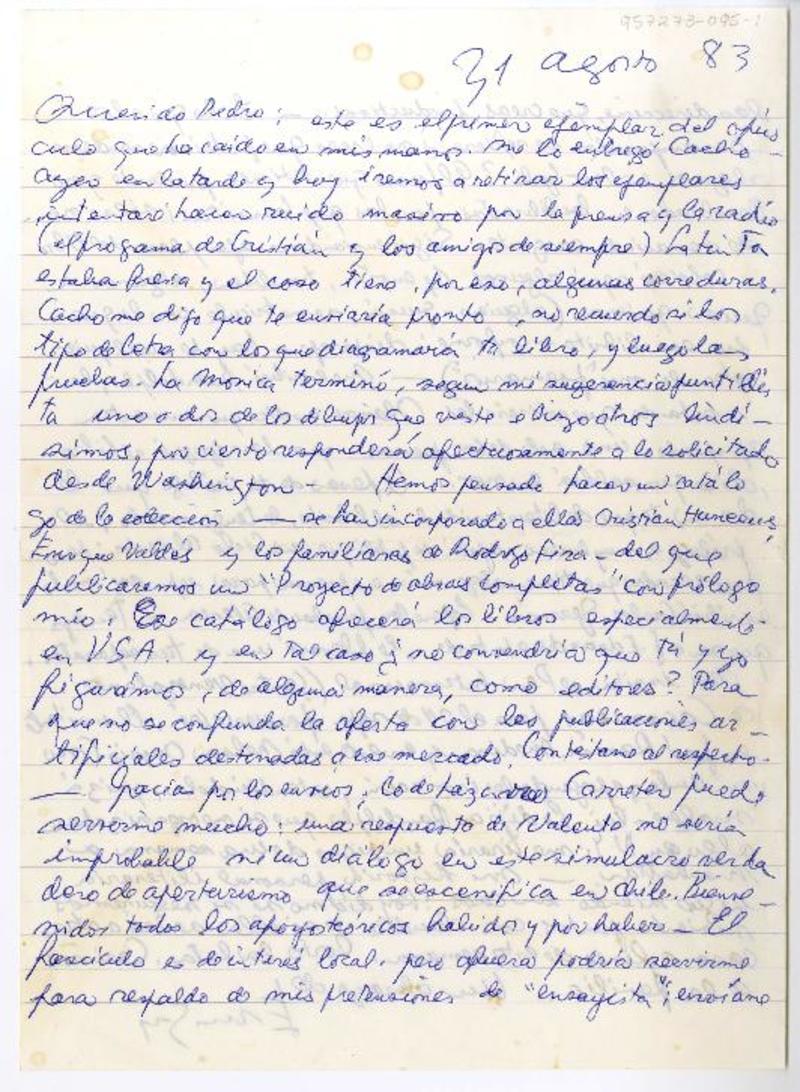 957273-095-1
31 agosto 83
Querido Pedro: este es el primer ejemplar del opús
culo que ha caído en mis manos. Me lo entregó Cacho
ayer en la tarde y hoy iremos a retirar los ejemplares
intentaré hacer ruido maximo por la prensa y la radio
(el programa de Cristián y los amigos de siempre) La tinta
estaba fresca y el coso tiene, por eso, algunas correduras.
Cacho me dijo que te enviaría pronto, no recuerdo si los
tipo de letra con los que diagramará tu libro, y luego las
pruebas. La Monica terminó, segun mi sugerencia puntillis
ta uno o dos de los dibujos que viste e hizo otros lindí-
simos, por cierto responderá afectuosamente a lo solicitado
desde Washington - Hemos pensado hacer un catálo
go de la colección — se han incorporado a ella Cristián Huneeus,
Enrique Valdés y los familiares de Rodrigo Lira - del que
publicaremos un "Proyecto de obras completas" con prólogo
mío. Ese catálogo ofrecerá los libros especialmente
en USA. y en tal caso ¿no convendría que tú y yo
figaramos, de alguna manera, como editores? Para
que no se confunda la oferta con las publicaciones ar-
tificiales destinadas a ese mercado. Contéstame al respecto.
— Gracias por los envios. Lo de Lázaro Carreter puede
servirme mucho: una respuesta de Valente no sería
improbable ni un dialogo en este simulacro verda
dero de aperturismo que se escenifica en Chile. Bienve-
nidos todos los apoyos teóricos habidos y por haber - El
fascículo es de interés local. pero afuera podría servirme
para respaldo de mis pretensiones de "ensayista"; envíame